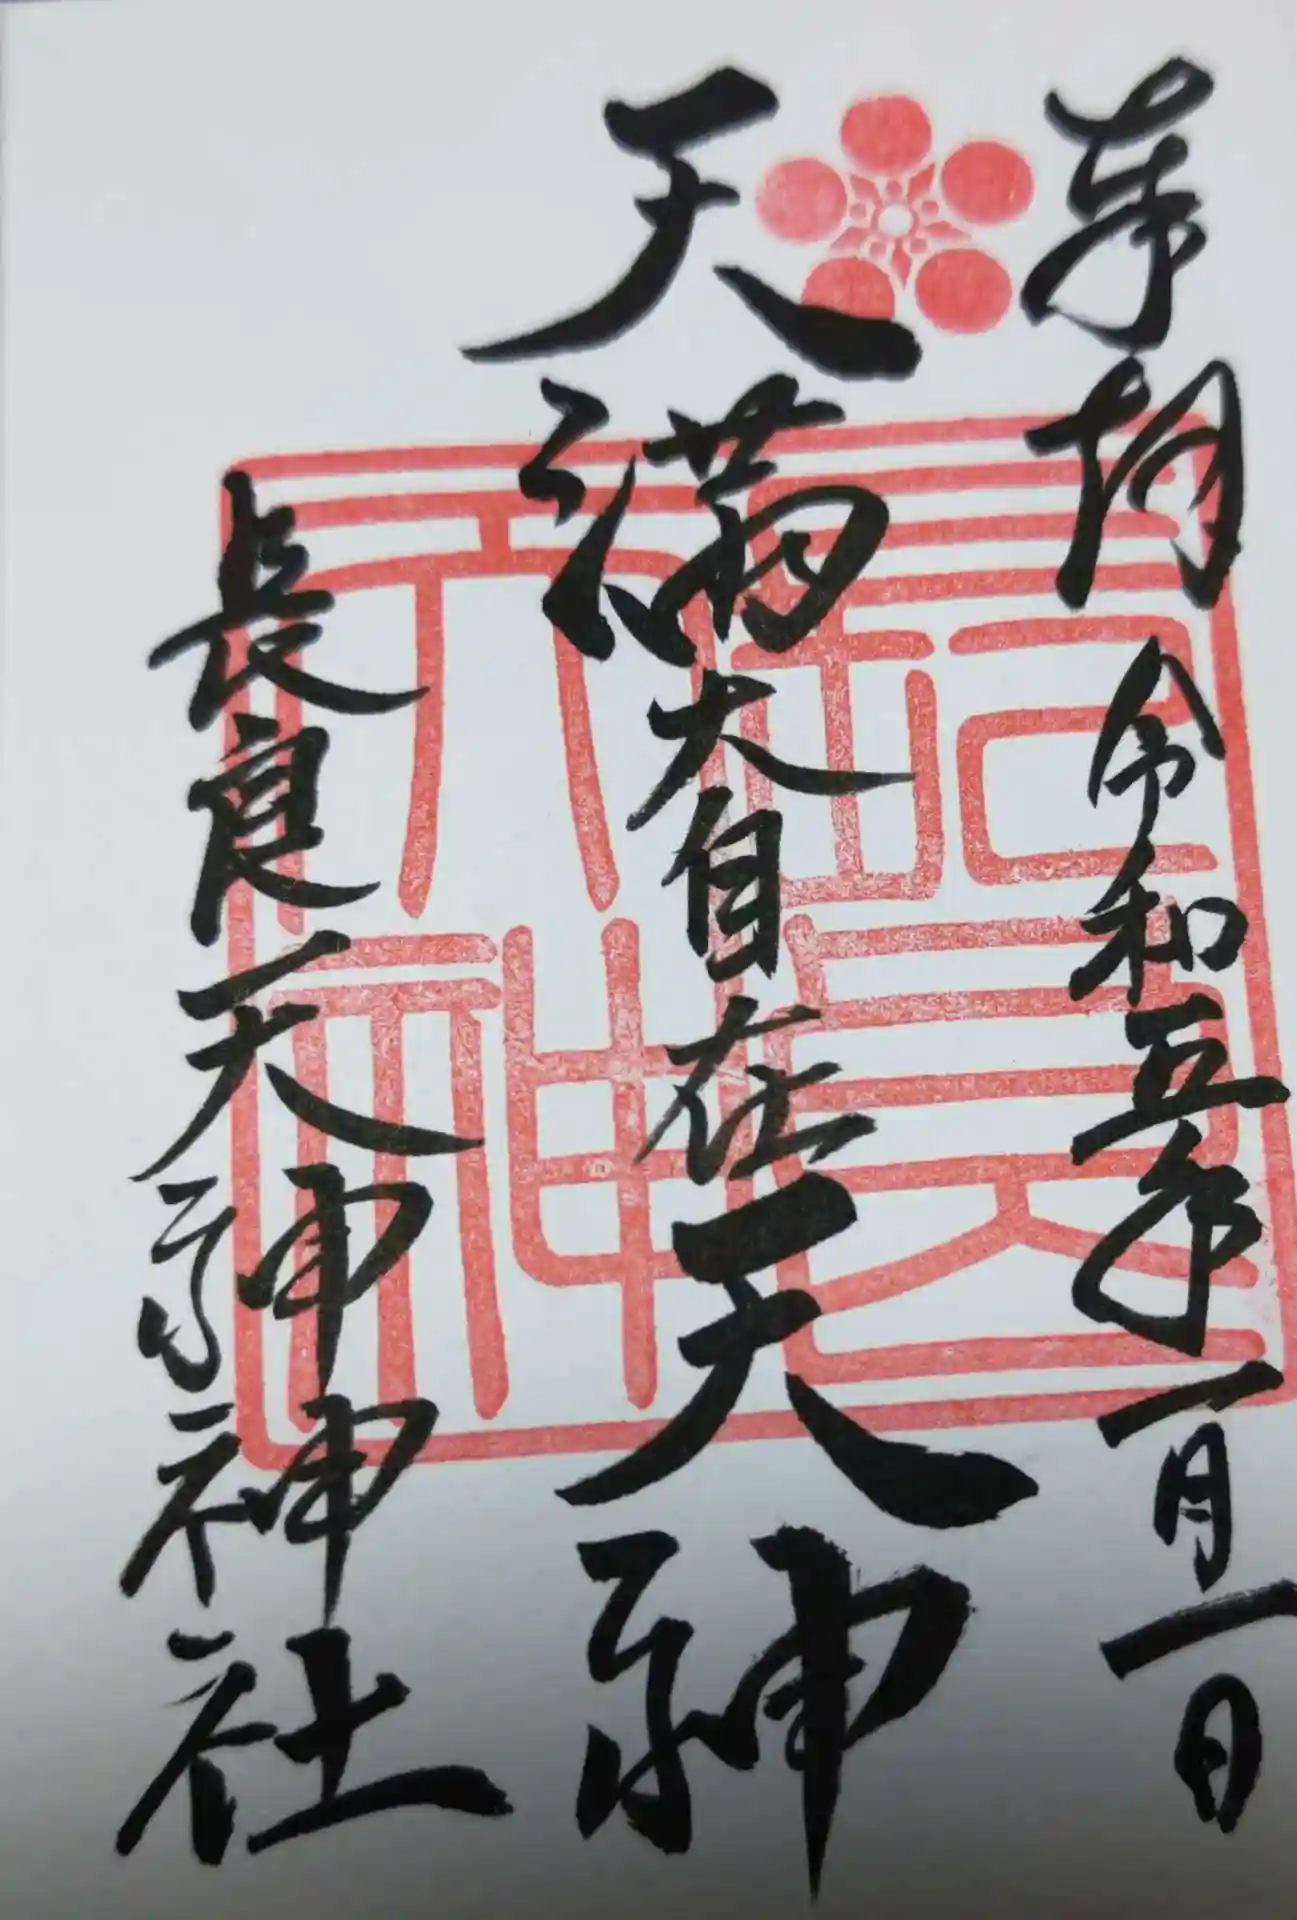 奉拝 令和五年一月一日
天満大自在天神
長良天神神社